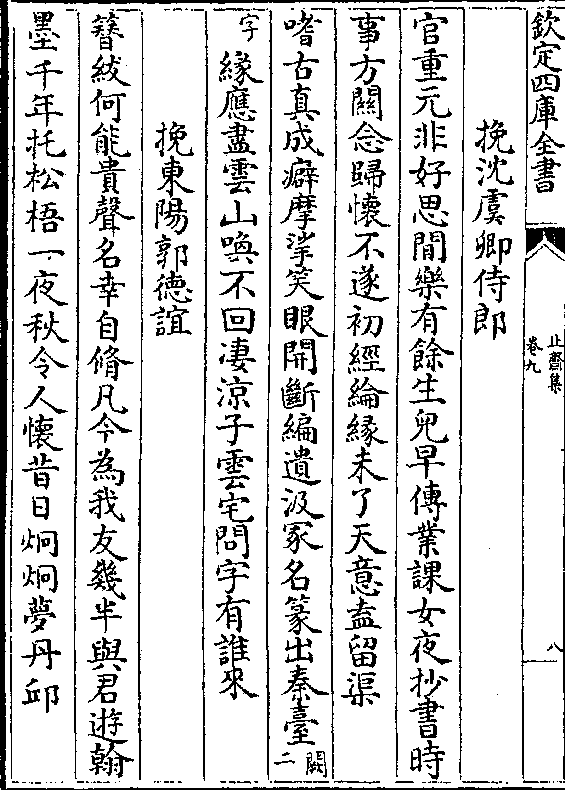 欽定四庫全書
止齋集
卷九
八
挽沈虞卿侍郎
官重元非好思閒樂有餘生兒早傳業課女夜抄書時
事方關念歸懷不遂初經綸緣未了天意盍留渠
嗜古真成癖摩挲笑眼開斷編遺汲冢名篆出秦臺闕二
字緣應盡雲山喚不回凄涼子雲宅問字有誰來
挽東陽郭德誼
簪紱何能貴聲名幸自脩凡今為我友幾半與君遊翰
墨千年托松梧一夜秋令人懷昔日炯炯夢丹邱